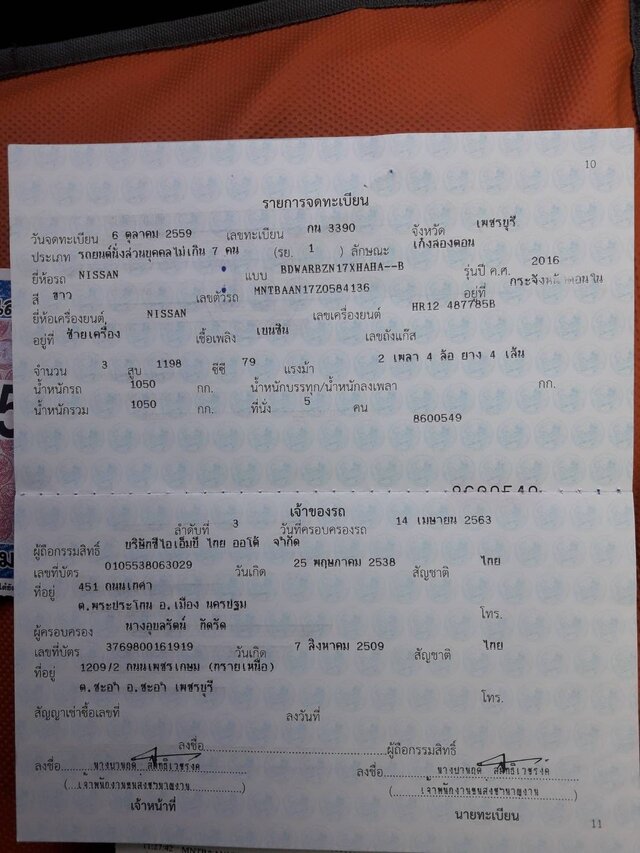 10
รายการจดทะเบียน
วันจดทะเบียน 6 ตุลาคม 2559 เลขทะเบียน กน 3390 จังหวัด เพชรบุรี
ประเภท รถยนต์นั่งส่วนบุคคลไม่เกิน 7 คน (รย. 1 ) ลักษณะ เก๋งสองตอน
ยี่ห้อรถ NISSAN แบบ BDWARBZN17XHAHA--B รุ่นปี ค.ศ. 2016
สี ขาว เลขตัวรถ MNTBAAN17Z0584136 อยู่ที่
ยี่ห้อเครื่องยนต์ NISSAN เลขเครื่องยนต์ HR12 487785B
อยู่ที่ ซ้ายเครื่อง เชื้อเพลิง เบนซิน เลขถังแก๊ส
จำนวน 3 สูบ 1198 ซีซี 79 แรงม้า 2 เพลา 4 ล้อ ยาง 4 เส้น
น้ำหนักรถ 1050 กก. น้ำหนักบรรทุก/น้ำหนักลงเพลา กก.
น้ำหนักรวม 1050 กก. ที่นั่ง 5 คน
8600549
8600549
เจ้าของรถ
ลำดับที่ 3 วันที่ครอบครองรถ 14 เมษายน 2563
ผู้ถือกรรมสิทธิ์ บริษัทซีไอเอ็มบี ไทย ออโต้ จำกัด
เลขที่บัตร 0105538063029 วันเกิด 25 พฤษภาคม 2538 สัญชาติ ไทย
ที่อยู่ 451 ถนนเทศา
ต.พระประโทน อ.เมือง นครปฐม
โทร.
ผู้ครอบครอง นางอุบลรัตน์
เลขที่บัตร 3769800161919 วันเกิด 7 สิงหาคม 2509 สัญชาติ ไทย
ที่อยู่ 1209/2 ถนนเพชรเกษม (ทรายเหนือ)
ต.ชะอำ อ.ชะอำ เพชรบุรี
โทร.
สัญญาเช่าซื้อเลขที่ ลงวันที่
ลงชื่อ ผู้ถือกรรมสิทธิ์
ลงชื่อ ลงชื่อ
(เจ้าพนักงานขนส่งชำนาญงาน) (เจ้าพนักงานขนส่งชำนาญงาน)
เจ้าหน้าที่ นายทะเบียน
11